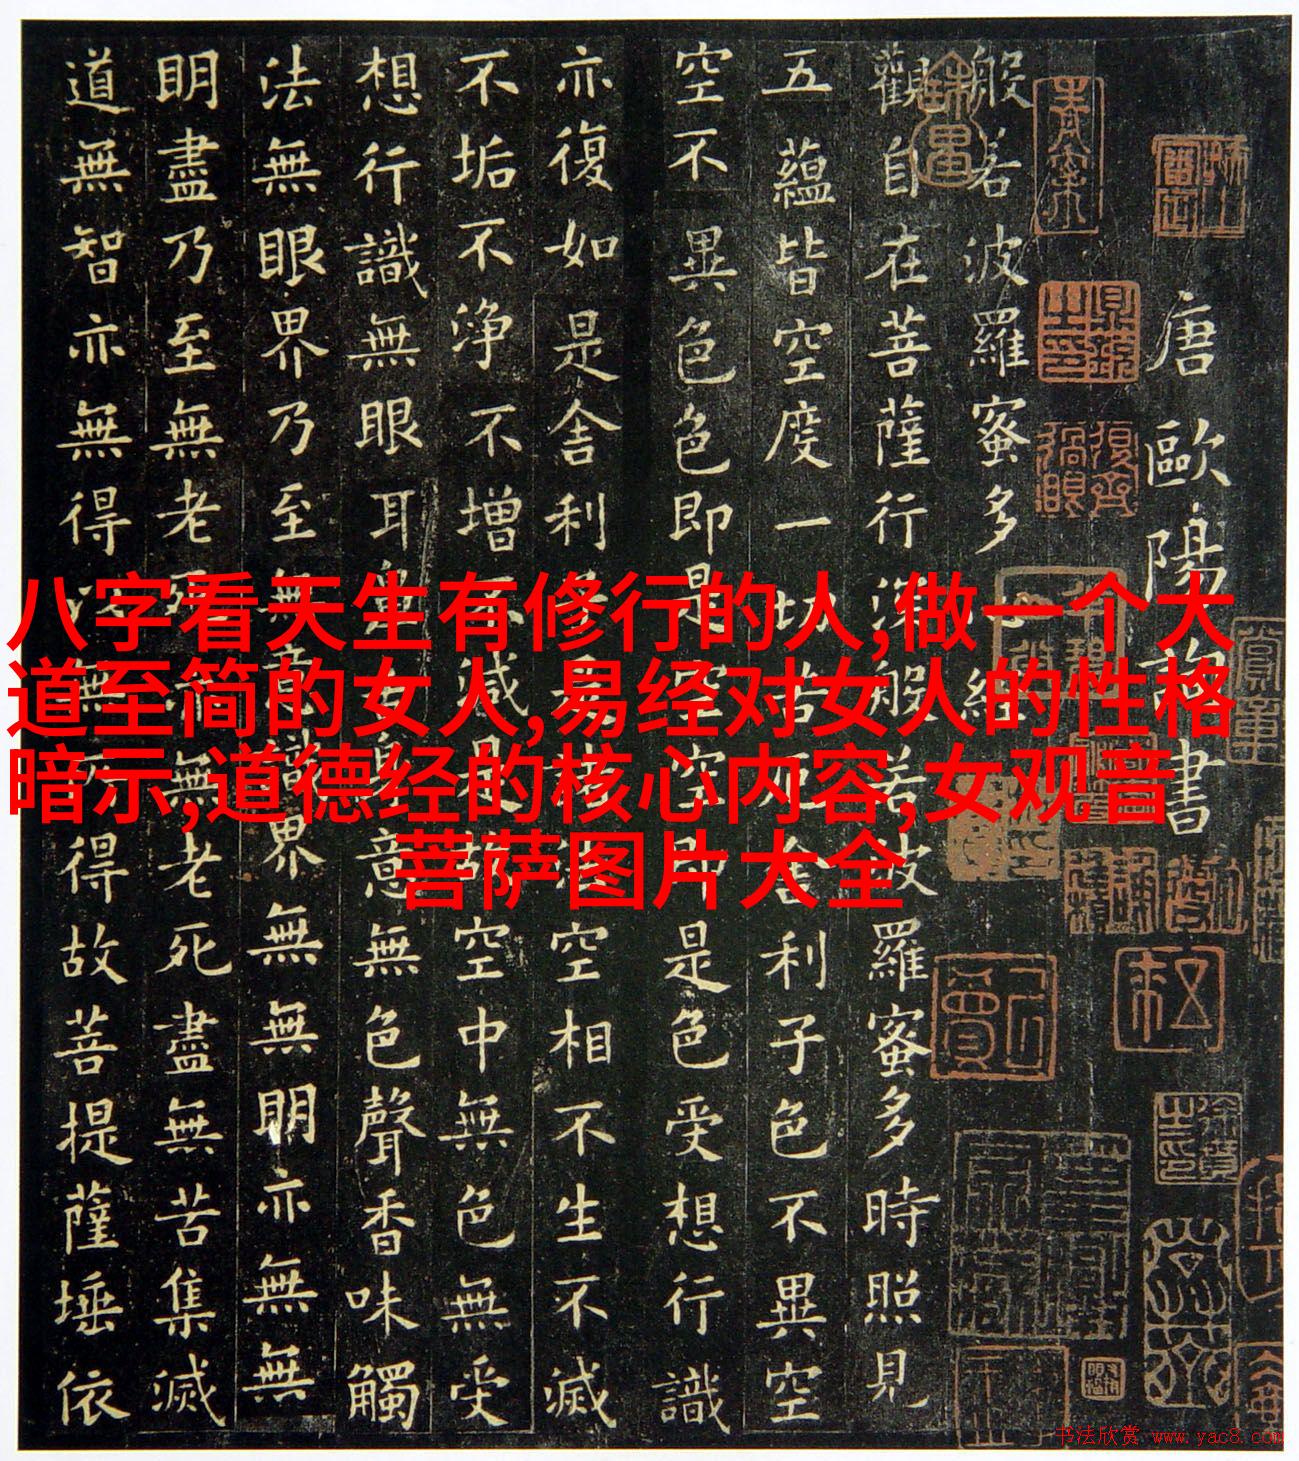 唐歐陽詢書
般若波羅蜜多心經
觀自在菩薩行深般若波羅蜜多時照見
五蘊皆空度一切苦厄舍利子色不異空
空不異色色即是空空即是色受想行識
亦復如是舍利子是諸法空相不生不滅
不垢不浄不增不減是故空中無色無受
想行識無眼耳鼻舌身意無色聲香味觸
法無眼界乃至無意識界無無明亦無無
明盡乃至無老死亦無老死盡無苦集滅
道無智亦無得以無所得故菩提薩埵依
八字看天生有修行的人,做一个大
道至简的女人,易经对女人的性格
暗示,道德经的核心内容,女观音
菩萨图片大全
书法欣赏 www.yac8.com